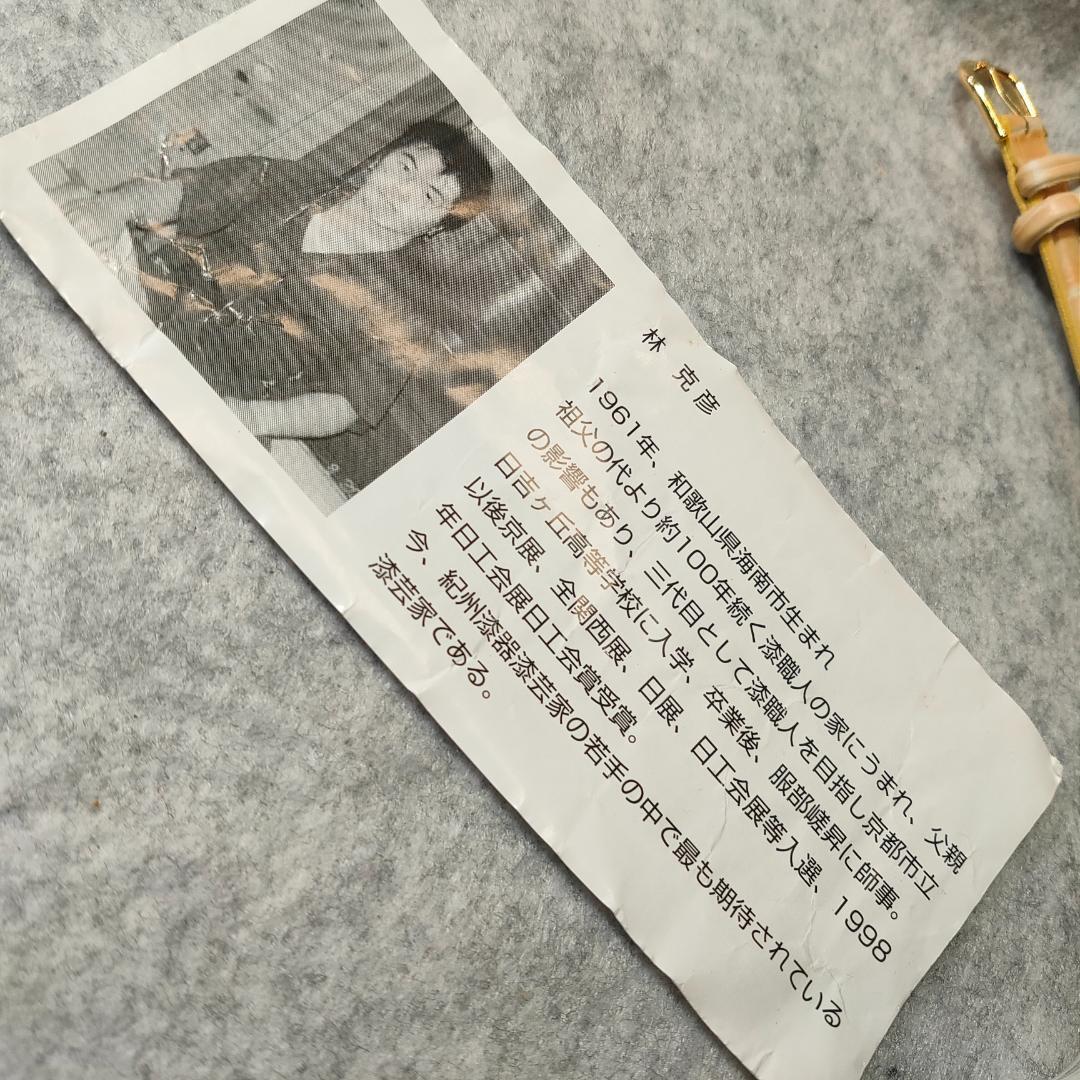 林 克彦
1961年、和歌山県海南市生まれ
祖父の代より約100年続く漆職人の家にうまれ、父親
の影響もあり、三代目として漆職人を目指し京都市立
日吉ヶ丘高等学校に入学、卒業後、服部嵯昇に師事。
以後京展、全関西展、日展、日工会展等入選、1998
年日工会展日工会賞受賞。
今、紀州漆器漆芸家の若手の中で最も期待されている
漆芸家である。